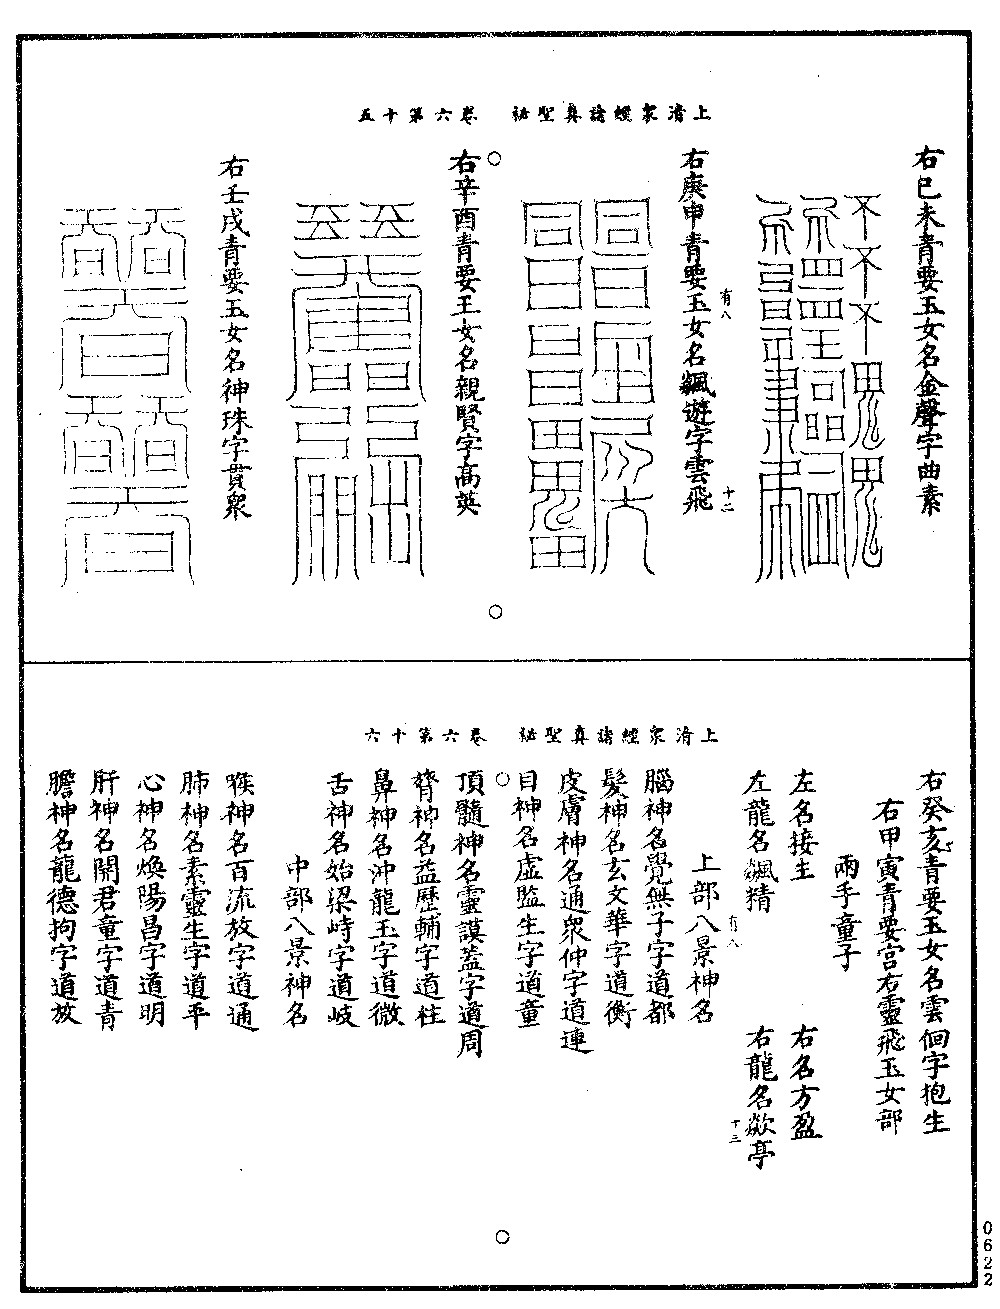 上清衆經諸真聖祕　卷六第十五
右己未青要玉女名金聲字曲素
有八
右庚申青要玉女名飆遊字雲飛
十二
右辛酉青要王女名親賢字高英
右壬戌青要玉女名神珠字貫衆
上清衆經諸真聖祕　卷六第十六
右癸亥青要玉女名雲佪字抱生
右甲寅青要宫右靈飛玉女部
兩手童子
左名接生　右名方盈
左龍名飆精　右龍名歘亭
有八
十三
上部八景神名
腦神名覺無子字道都
髮神名玄文華字道衡
皮膚神名通衆仲字道連
目神名虚監生字道童
頂髓神名靈謨蓋字道周
膂神名益歷輔字道柱
鼻神名沖龍玉字道微
舌神名始梁峙字道岐
中部八景神名
喉神名百流放字道通
肺神名素靈生字道平
心神名煥陽昌字道明
肝神名開君童字道青
膽神名龍德拘字道放
0622